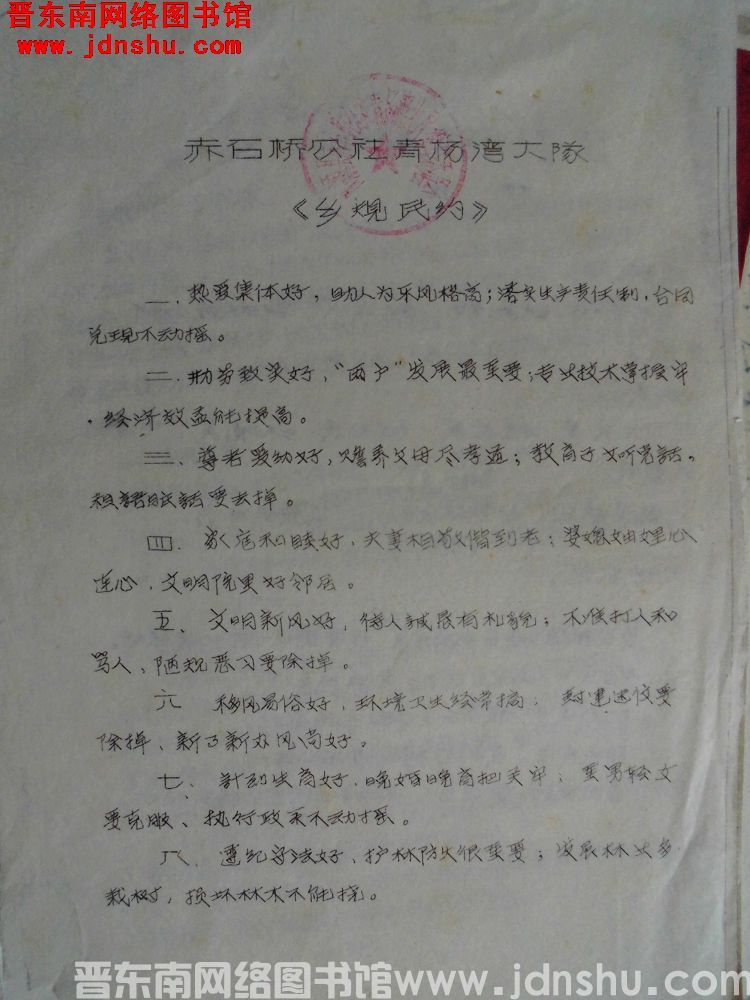 晋东南网络图书馆
www.jdnshu.com
赤石桥公社青杨湾大队
《乡规民约》
一、热爱集体好，助人为乐风格高；落实生产责任制，合同
兑现不动摇。
二、勤劳致富好，“两户”发展最重要；专业技术掌握牢
，经济效益能提高。
三、尊老爱幼好，赡养父母尽孝道；教育子女听党話。
粗話脏話要去掉。
四、家庭和睦好，夫妻相敬偕到老；婆媳妯娌心
连心，文明院里好邻居。
五、文明新风好，待人誠恳有礼貌；不准打人和
骂人、陋规恶习要除掉。
六 移风易俗好，环境卫生经常搞；封建迷信要
除掉、新事新办风尚好。
七、計划生育好、晚婚晚育把关牢；重男轻女
要克服、执行政策不动摇。
八、遵纪守法好、护林防火很重要；发展林业多
栽树，损坏林木不能挠。
晋东南网络图书馆www.jdnshu.com